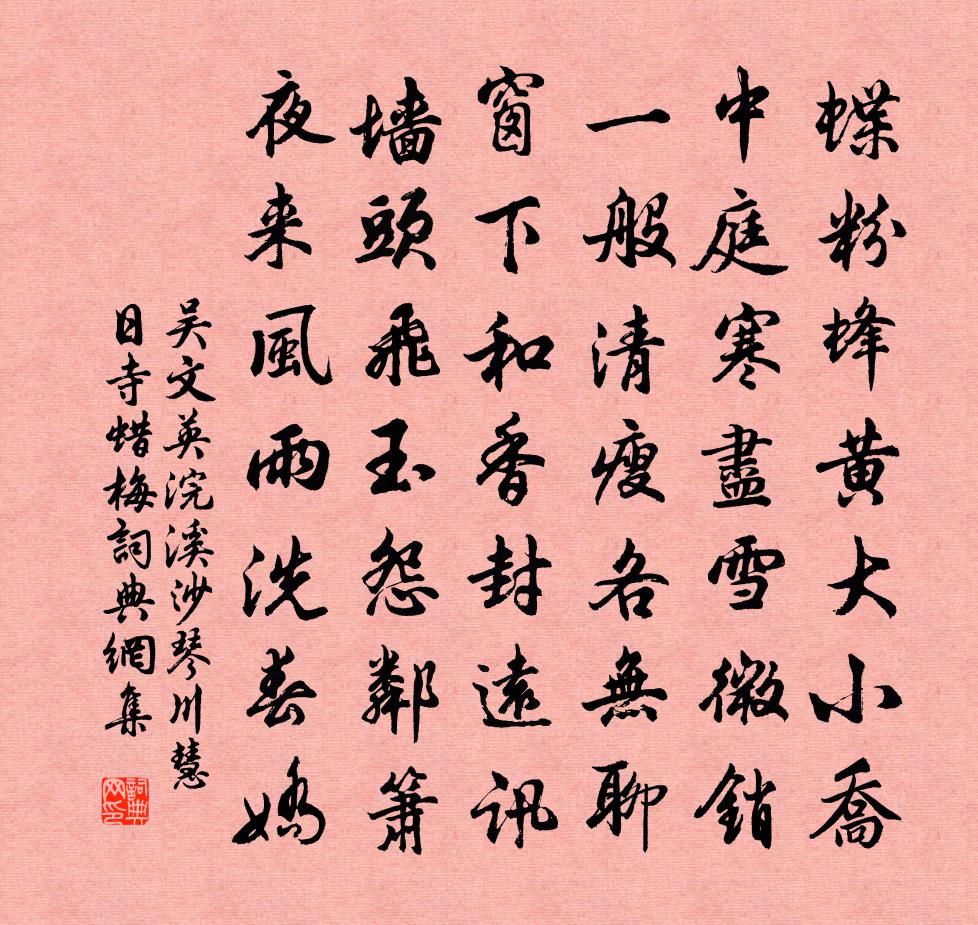 蝶粉蜂黄大小喬
中庭寒盡雪微銷
一般清瘦各無聊
窗下和香封遠訊
墻頭飛玉怨鄰簫
夜来風雨洗春嬌
吴文英浣溪沙琴川慧
日寺蜡梅詞典網集
詞典网印